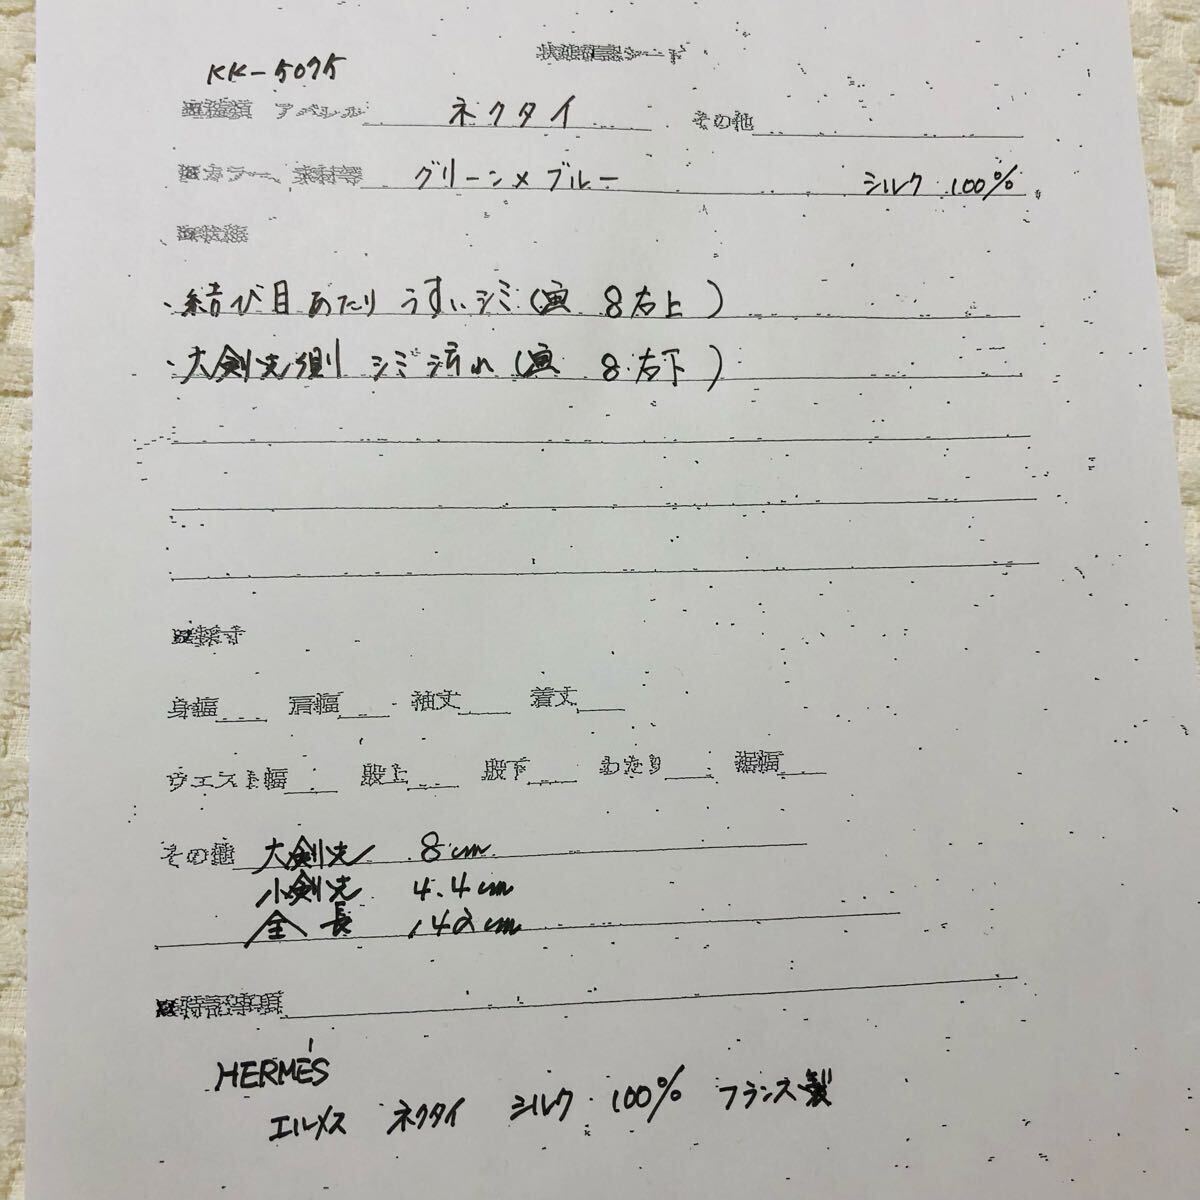 状態確認シート
KK-5075
■種類 アパレル ネクタイ その他
■カラー、素材等 グリーン×ブルー シルク 100%
■状態
・結び目あたり うすいシミ(画 8右上)
・大剣先側 シミ汚れ(画 8右下)
■採寸
身幅 肩幅 袖丈 着丈
ウエスト幅 股上 股下 わたり 裾幅
その他 大剣先 8cm
小剣先 4.4cm
全長 142cm
■特記事項
HERMÉS
エルメス ネクタイ シルク 100% フランス製